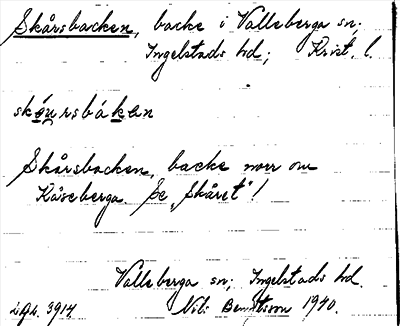 Skårsbacken, backe i Valleberga sn;
Ingelstads hd; Krist. l.
skóursbákan
Skårsbacken, backe norr om
Kåseberga. Se „Skåret"!
Valleberga sn; Ingelstads hd.
Nils Bengtsson 1940.
3914